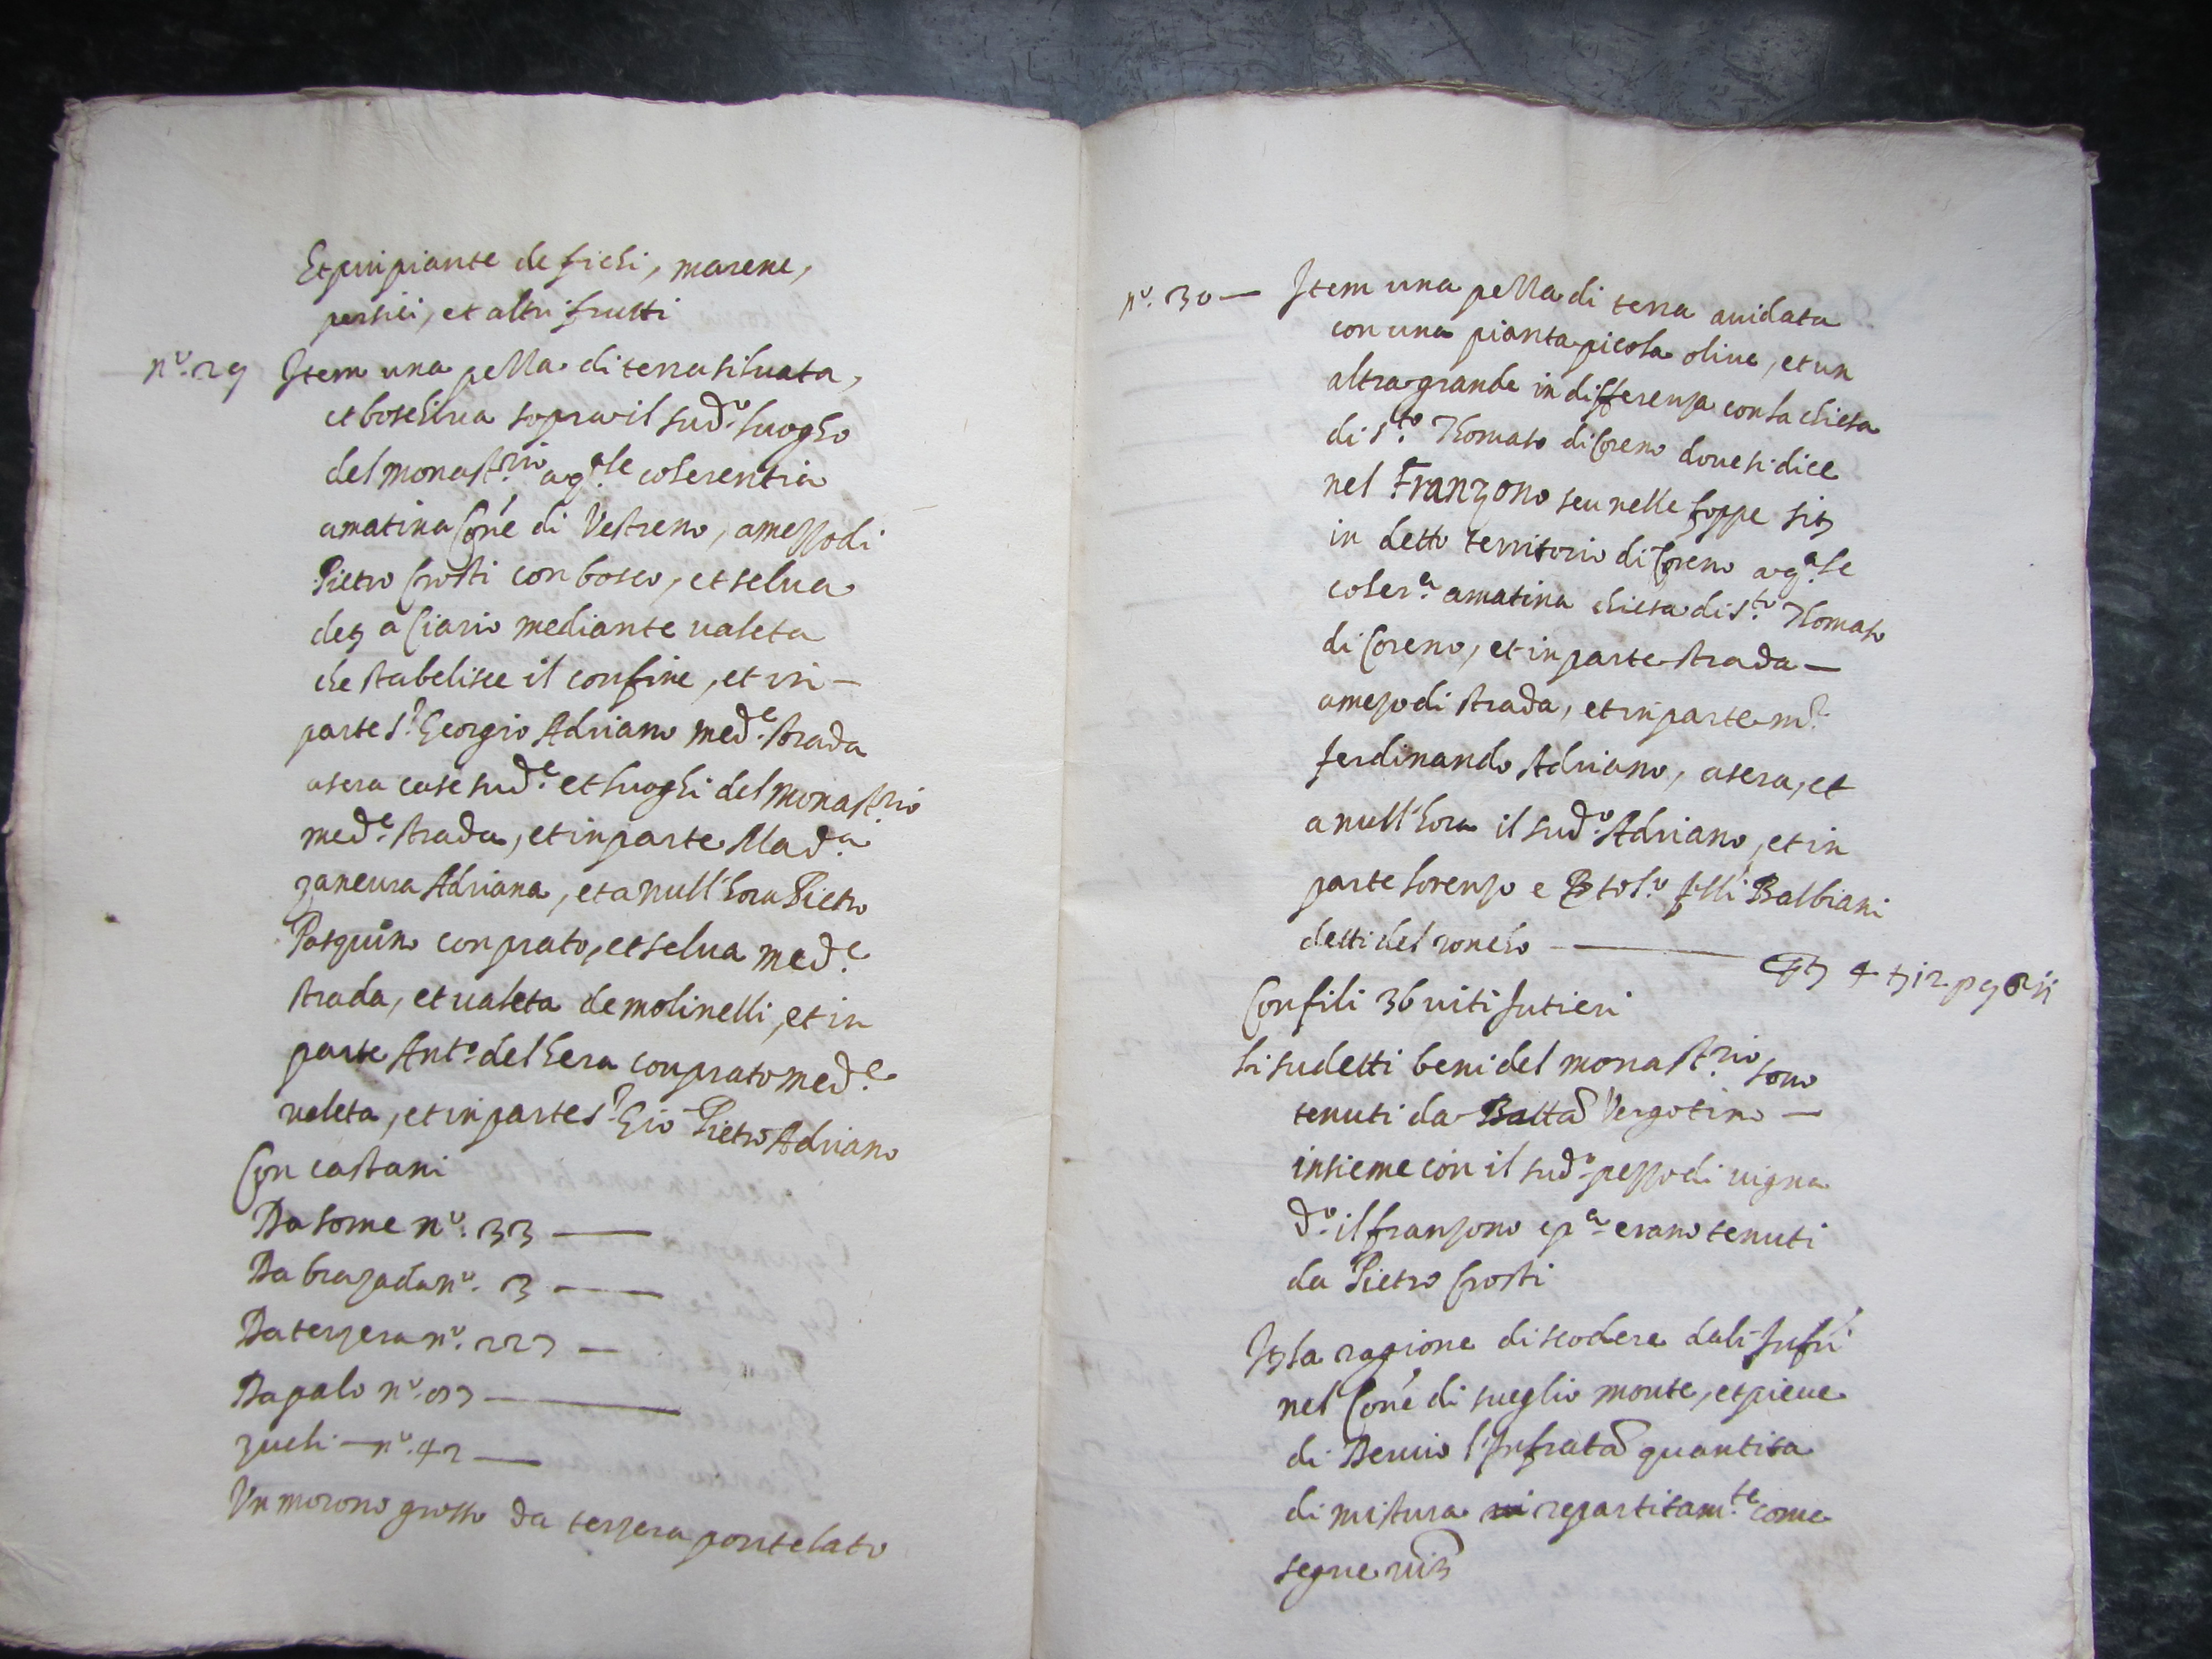 Et piu piante de fichi, marene,
persici, et altri frutti
n.º 29 Item una pezza di terra siluata,
et boschiua sopra il sud.º luogho
del monast.rio a q.ale coherentia
a matina Cone di Vestreno, a mezzo di
Pietro Crosti con bosco, et selua
de a Ciario mediante valeta
che stabelisce il confine, et in –
parte S.r Georgio Adriano med.e strada
a sera case sud.e et luoghi del monast.rio
med.e strada, et in parte Mad.a
zaneura Adriana, et a null'hora Pietro
Pasquino con prato, et selua med.e
strada, et valeta de molinelli, et in
parte Ant.º del hera con prato med.e
valeta, et in parte S.r Gio Pietro Adriano
Con castani
Da some n.º 33 —
Da brazada n.º 3 —
Da terzera n.º 227 —
Da palo n.º 87 —
zuchi — n.º 42 —
Un morono grosso da terzera pontelato
n.º 30 — Item una pezza di terra auidata
con una pianta picola oliue, et un
altra grande in differenza con la chiesa
di S.to Thomaso di Coreno doue si dice
nel Franzono seu nelle foppe sit
in detto territorio di Coreno a q.ale
coher.a a matina chiesa di S.to Thomaso
di Coreno, et in parte strada —
a mezo di strada, et in parte m.r
ferdinando Adriano, a sera, et
a null'hora il sud.º Adriano, et in
parte Lorenzo e Btol.º f.lli Balbiani
detti del zoncho —
Con fili 36 uiti sutieri
Li sudetti beni del monast.rio sono
tenuti da Batta Vergotino —
insieme con il sud.º pezzo di uigna
d.º il franzono e p.a erano tenuti
da Pietro Crosti
It la ragione di scodere dali infri
nel Cone di sueglio monte, et pieue
di Deruio l'infrata quantita
di mistura repartitam.te come
segue